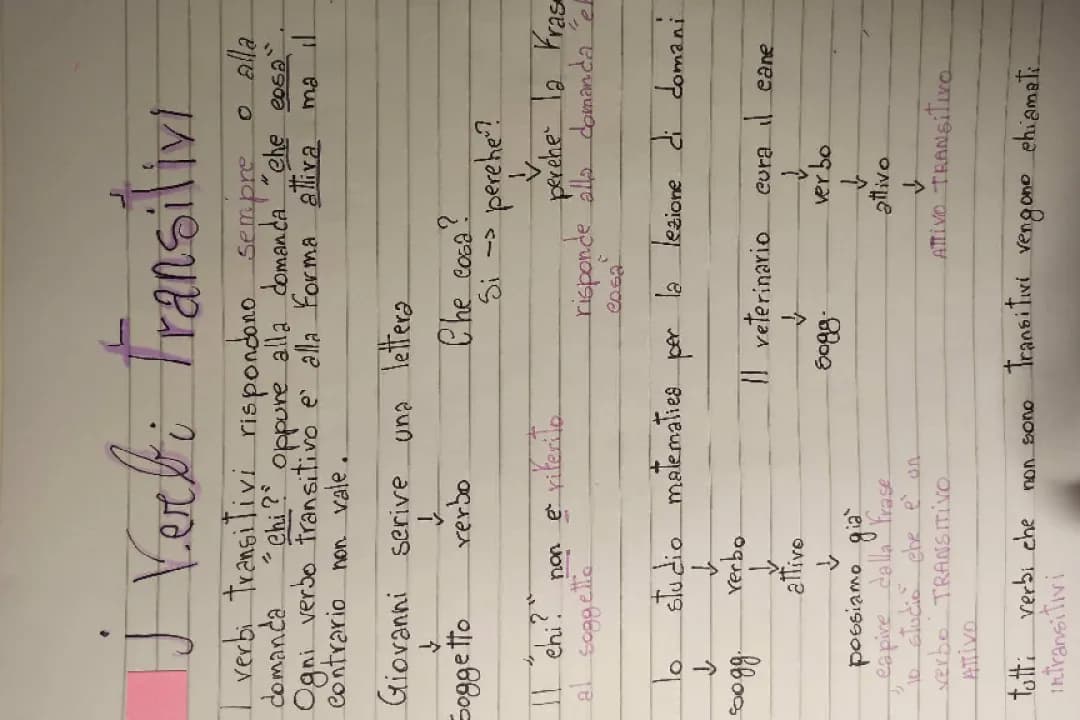 I Verbi Transitivi
I verbi transitivi rispondono sempre o alla
domanda "chi?" oppure alla domanda "che cosa".
Ogni verbo transitivo è alla forma attiva ma il
contrario non vale.
Giovanni scrive una lettera
soggetto verbo Che cosa?
Si -> perche?
Il "chi?" non è riferito perche la frase
al soggetto risponde alla domanda
cosa"
Io studio matematica per la lezione di domani
sogg. verbo Il veterinario cura il cane
attivo sogg. verbo
possiamo già attivo
capire dalla frase
"io studio" che è un ATTIVO TRANSITIVO
verbo TRANSITIVO
ATTIVO
tutti i verbi che non sono transitivi vengono chiamati
intransitivi